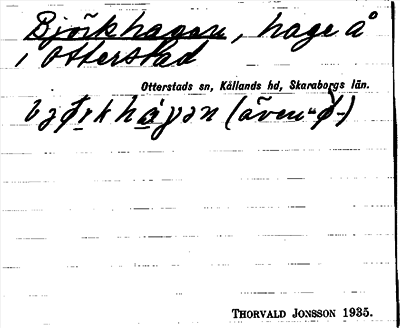 Björkhagen, hage å
i Otterstad
Otterstads sn, Kållands hd, Skaraborgs län.
(även -ø̄-)
THORVALD JONSSON 1935.